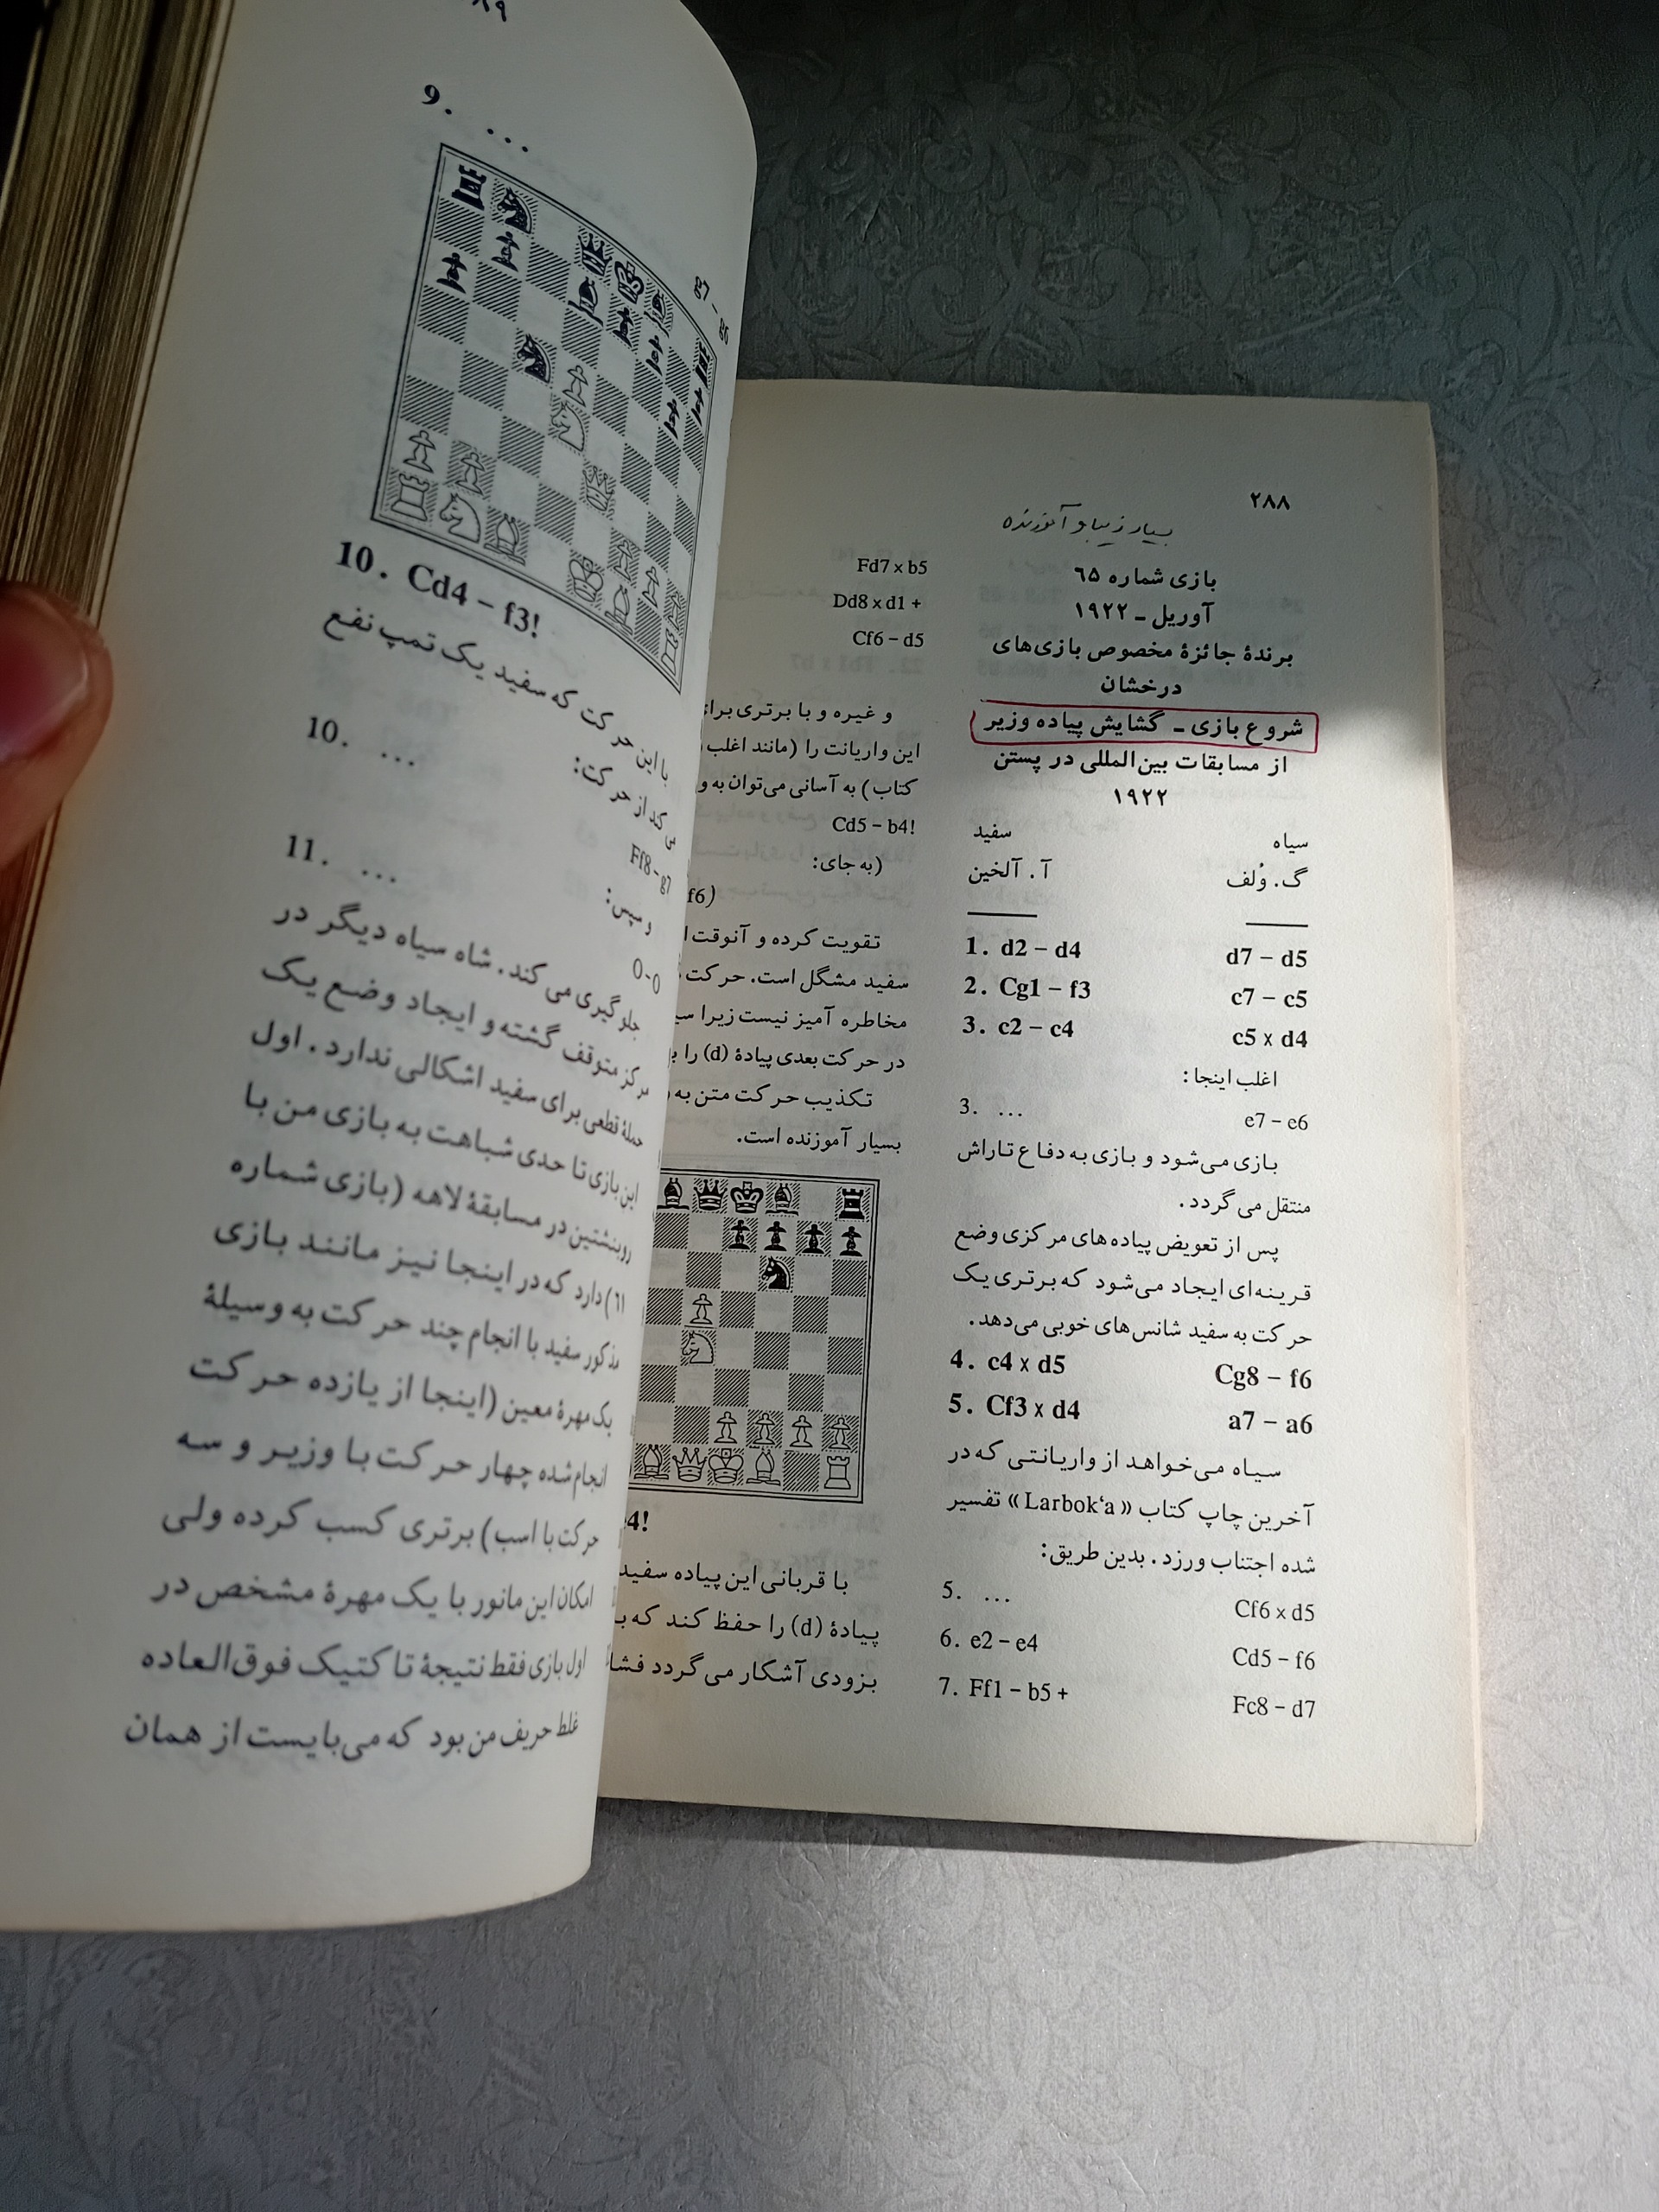 ۲۸۸
بسیار زیبا و آموزنده
بازی شماره ٦٥
آوریل ـ ۱۹۲۲
برندهٔ جائزهٔ مخصوص بازی‌های
درخشان
شروع بازی ـ گشایش پیاده وزیر
از مسابقات بین‌المللی در پستن
۱۹۲۲
سیاه سفید
گ. وُلف آ. آلخین
1. d2 – d4 d7 – d5
2. Cg1 – f3 c7 – c5
3. c2 – c4 c5 x d4
اغلب اینجا:
3. ... e7 – e6
بازی می‌شود و بازی به دفاع تاراش
منتقل می گردد.
پس از تعویض پیاده‌های مرکزی وضع
قرینه‌ای ایجاد می‌شود که برتری یک
حرکت به سفید شانس‌های خوبی می‌دهد.
4. c4 x d5 Cg8 – f6
5. Cf3 x d4 a7 – a6
سیاه می‌خواهد از واریانتی که در
آخرین چاپ کتاب «Larbok‘a» تفسیر
شده اجتناب ورزد. بدین طریق:
5. ... Cf6 x d5
6. e2 – e4 Cd5 – f6
7. Ff1 – b5 + Fc8 – d7
Fd7 x b5
Dd8 x d1 +
Cf6 – d5
و غیره و با برتری
این واریانت را (مانند اغلب
کتاب) به آسانی می‌توان به
Cd5 – b4!
(به جای:
f6)
تقویت کرده و آنوقت
سفید مشگل است. حرکت
مخاطره آمیز نیست زیرا
در حرکت بعدی پیادهٔ (d) را
تکذیب حرکت متن به
بسیار آموزنده است.
4!
با قربانی این پیاده سفید
پیادهٔ (d) را حفظ کند که
بزودی آشکار می گردد
۸۹
9. ...
10. Cd4 – f3!
با این حرکت که سفید یک تمپ نفع
می کند از حرکت:
10. ... Ff8 – g7
و سپس:
11. ... 0-0
جلوگیری می کند. شاه سیاه دیگر در
مرکز متوقف گشته و ایجاد وضع یک
حملهٔ قطعی برای سفید اشکالی ندارد. اول
این بازی تا حدی شباهت به بازی من با
روبنشتین در مسابقهٔ لاهه (بازی شماره
٦١) دارد که در اینجا نیز مانند بازی
مذکور سفید با انجام چند حرکت به وسیلهٔ
یک مهرهٔ معین (اینجا از یازده حرکت
انجام شده چهار حرکت با وزیر و سه
حرکت با اسب) برتری کسب کرده ولی
امکان این مانور با یک مهرهٔ مشخص در
اول بازی فقط نتیجهٔ تاکتیک فوق‌العاده
غلط حریف من بود که می‌بایست از همان